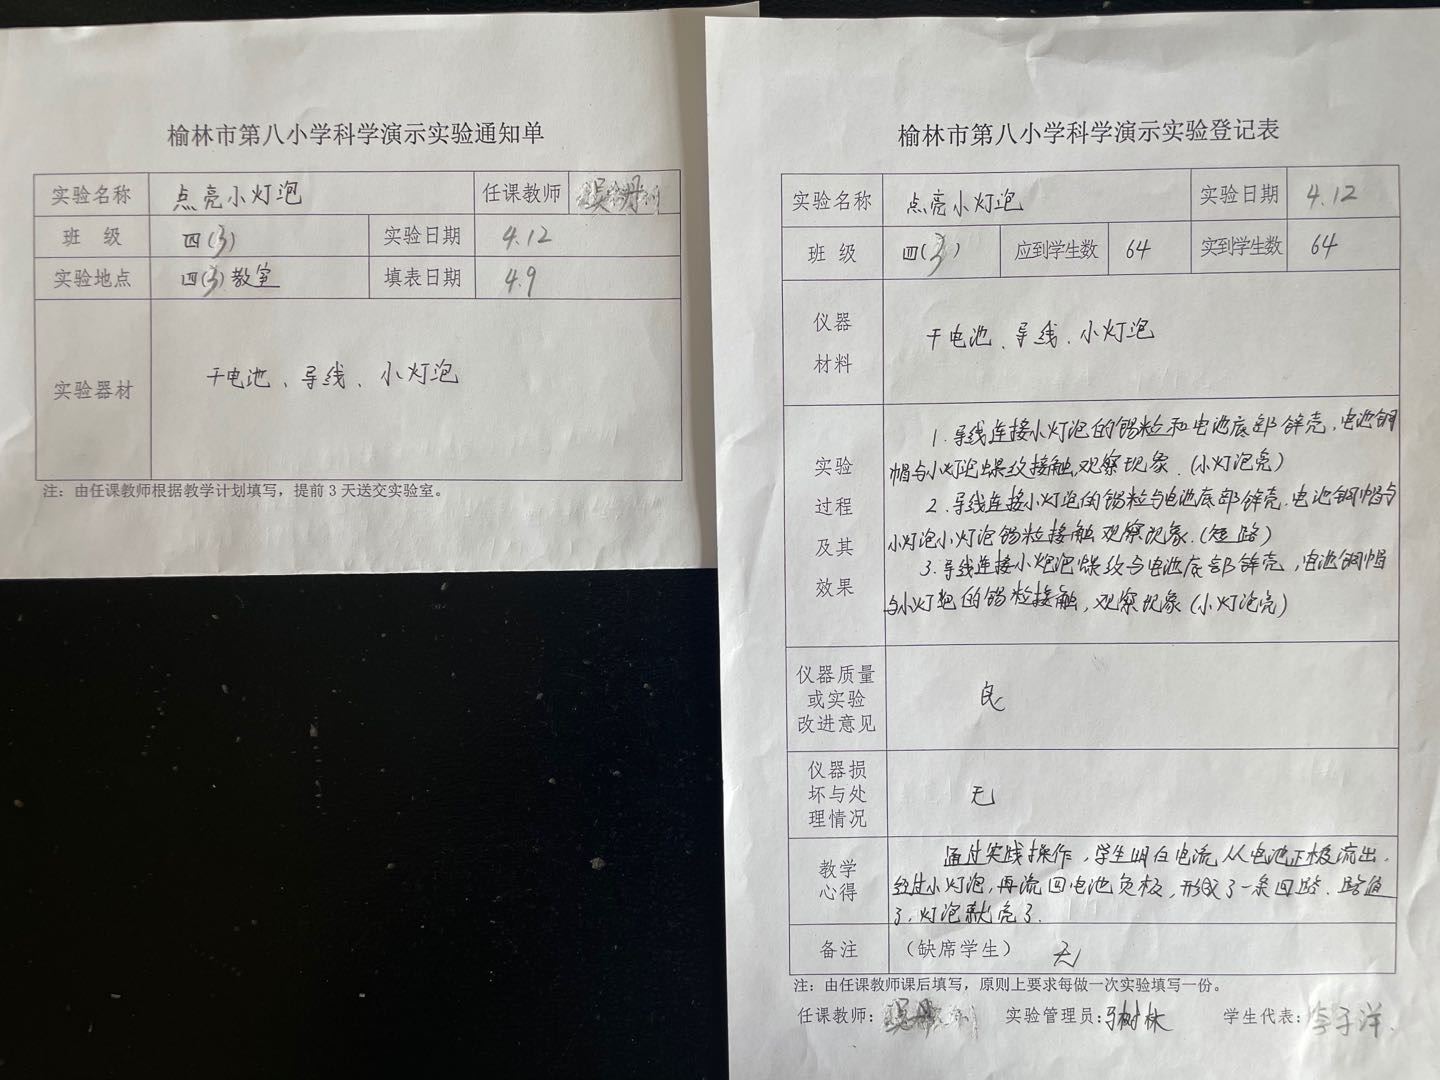 榆林市第八小学科学演示实验通知单
实验名称 点亮小灯泡 任课教师
班 级 四(3) 实验日期 4.12
实验地点 四(3)教室 填表日期 4.9
实验器材 干电池、导线、小灯泡
注：由任课教师根据教学计划填写，提前3天送交实验室。
榆林市第八小学科学演示实验登记表
实验名称 点亮小灯泡 实验日期 4.12
班 级 四(3) 应到学生数 64 实到学生数 64
仪器
材料
干电池、导线、小灯泡
实验
过程
及其
效果
1.导线连接小灯泡的锡粒和电池底部锌壳，电池铜
帽与小灯泡螺纹接触,观察现象.(小灯泡亮)
2.导线连接小灯泡的锡粒与电池底部锌壳.电池铜帽与
小灯泡小灯泡锡粒接触,观察现象.(短路)
3.导线连接小炮泡螺纹与电池底部锌壳，电池铜帽
与小灯炮的锡粒接触,观察现象(小灯泡亮)
仪器质量
或实验
改进意见
良
仪器损
坏与处
理情况
无
教学
心得
通过实践操作，学生明白电流从电池正极流出，
经过小灯泡,再流回电池负极,形成了一条回路.路通
了,灯泡就亮了.
备注 （缺席学生） 无
注：由任课教师课后填写，原则上要求每做一次实验填写一份。
任课教师： 实验管理员: 树林 学生代表: 李子洋